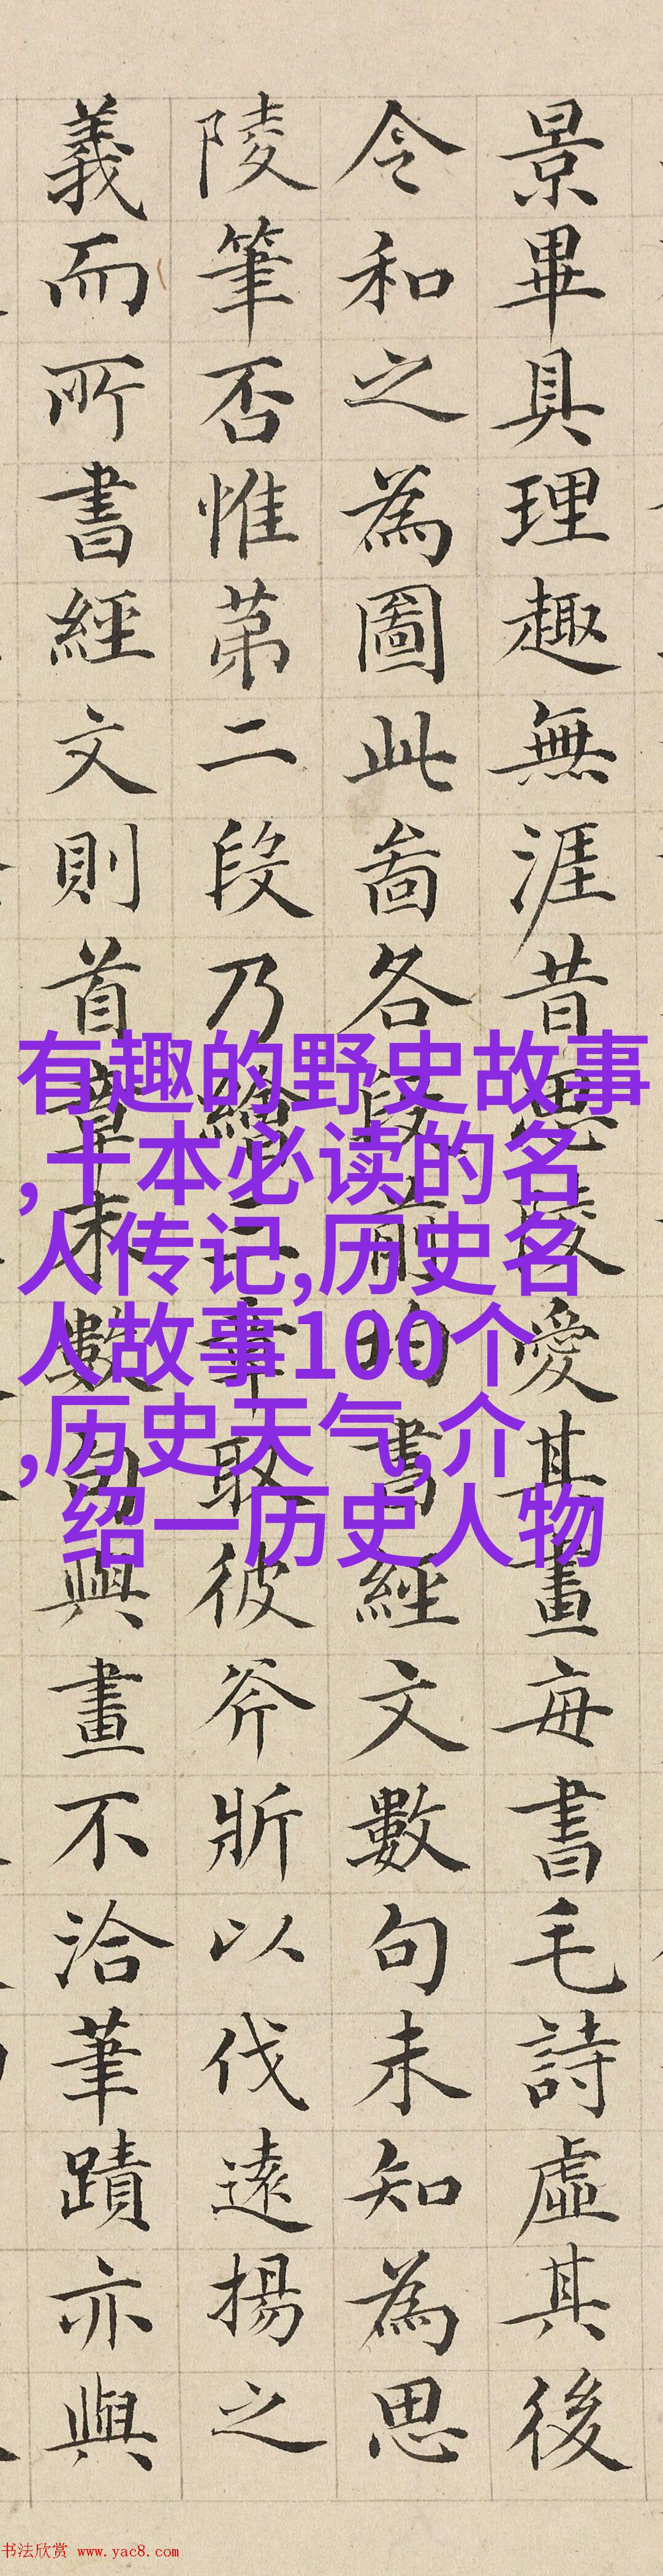 景畢具理趣無涯昔思陵愛其畫每書毛詩虛其後
令和之為圖此啚各段前均書經文數句未知為思
陵筆否惟苐二段乃繪二章取彼斧斨以伐遠揚之
義而所書經文則首章末數句與畫不洽筆蹟亦與
有趣的野史故事
,十本必读的名
人传记,历史名
人故事100个
,历史天气,介
绍一历史人物
书法欣赏 www.yac8.com